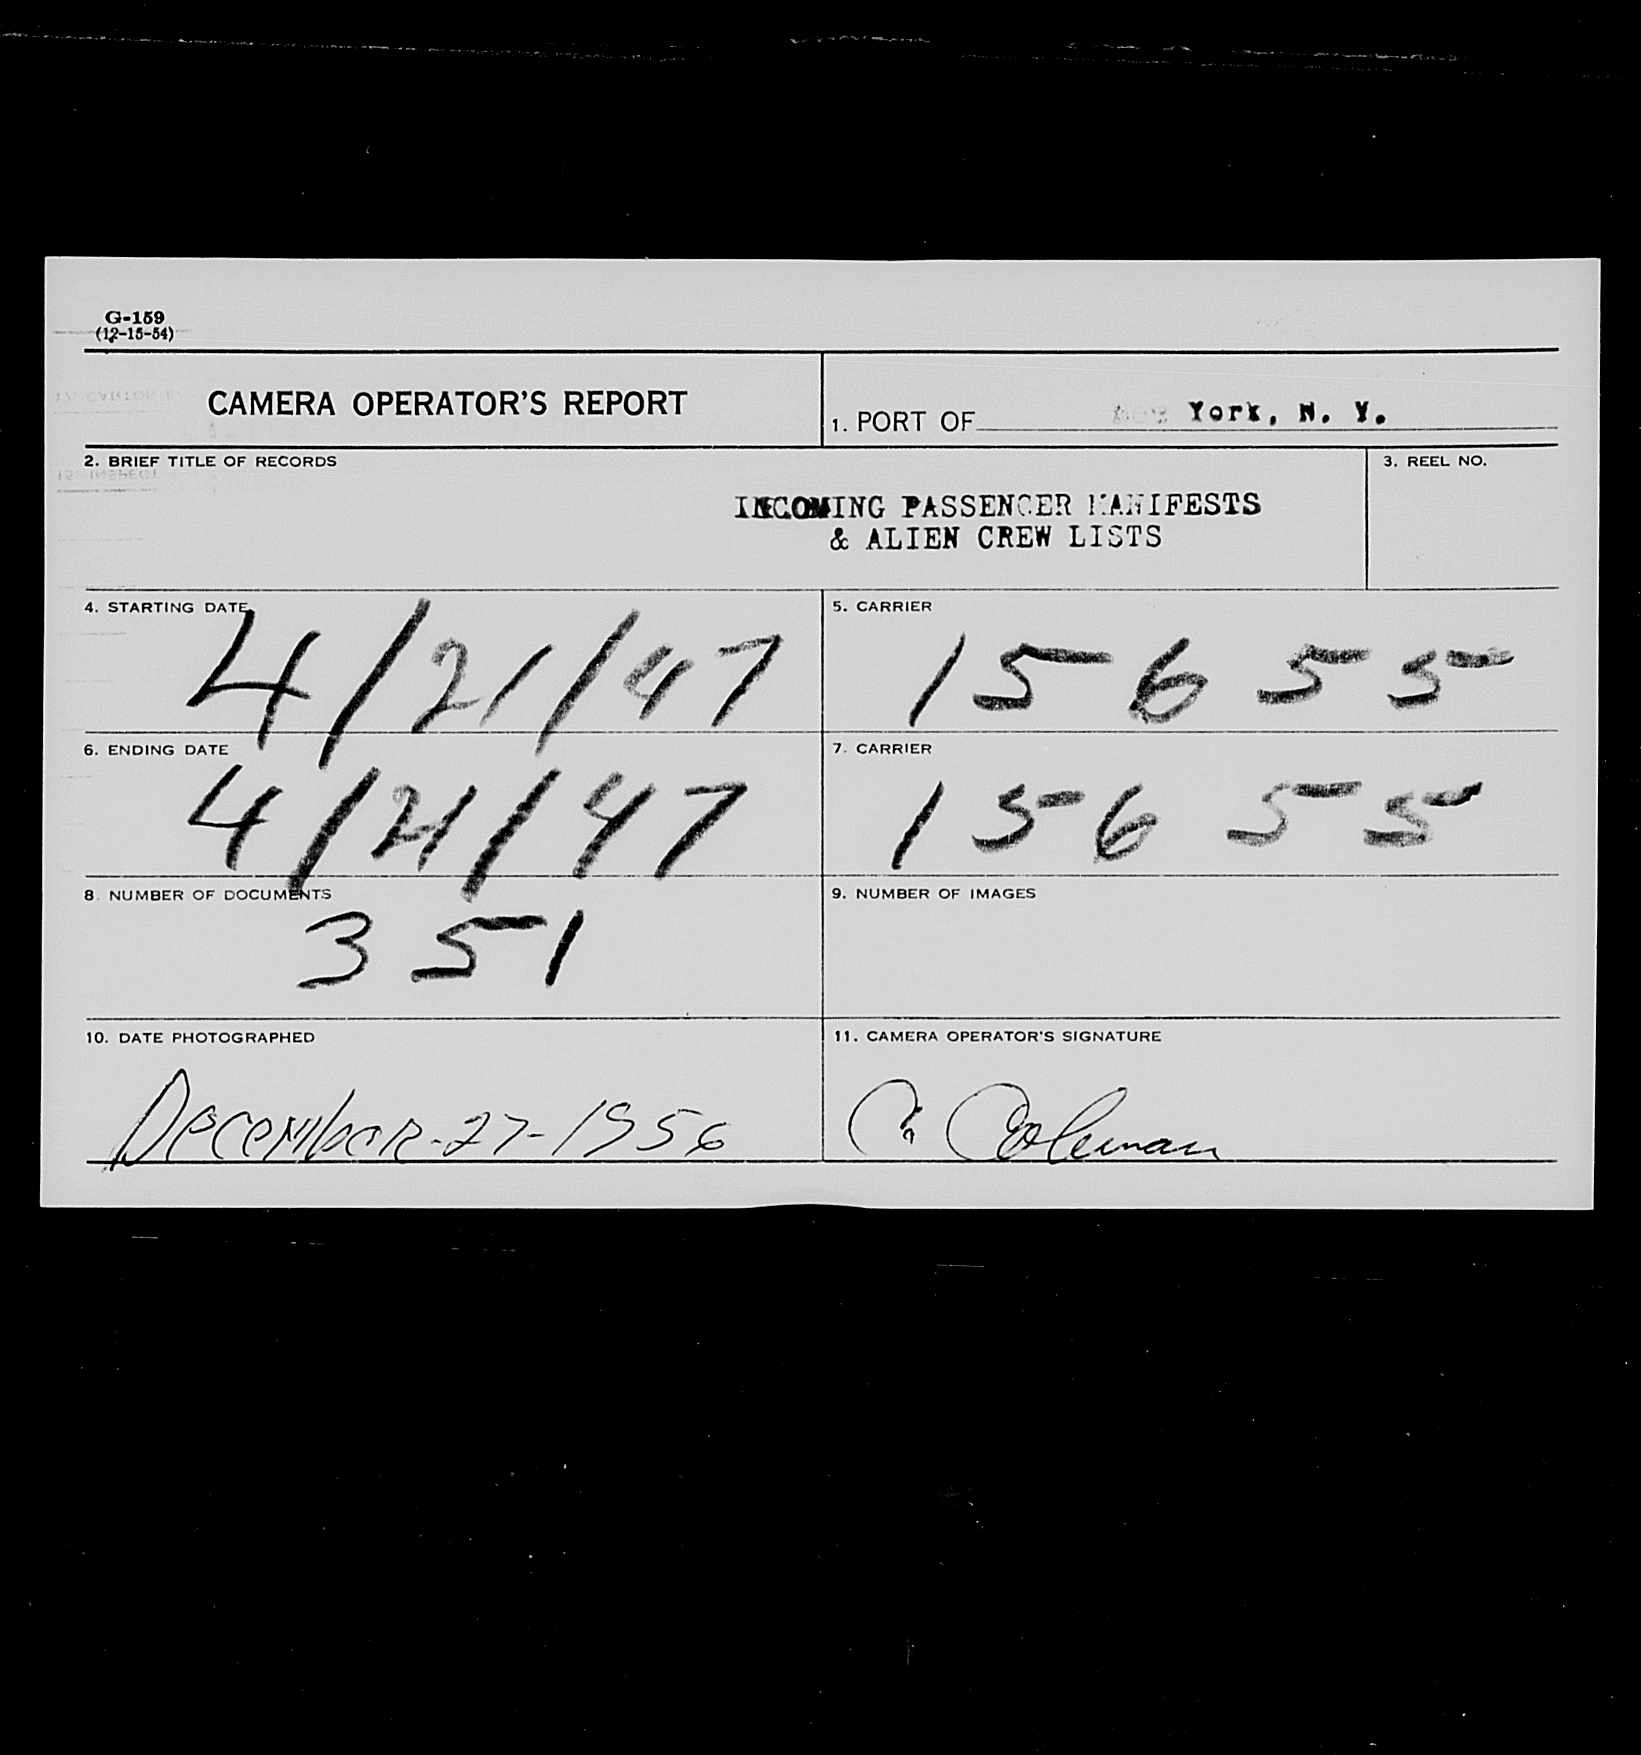 G-159
(12-15-54)
CAMERA OPERATOR'S REPORT
1. PORT OF New York, N. Y.
2. BRIEF TITLE OF RECORDS
3. REEL NO.
INCOMING PASSENGER MANIFESTS
& ALIEN CREW LISTS
4. STARTING DATE
4/21/47
5. CARRIER
15655
6. ENDING DATE
4/21/47
7. CARRIER
15655
8. NUMBER OF DOCUMENTS
351
9. NUMBER OF IMAGES
10. DATE PHOTOGRAPHED
December-27-1956
11. CAMERA OPERATOR'S SIGNATURE
C. Coleman